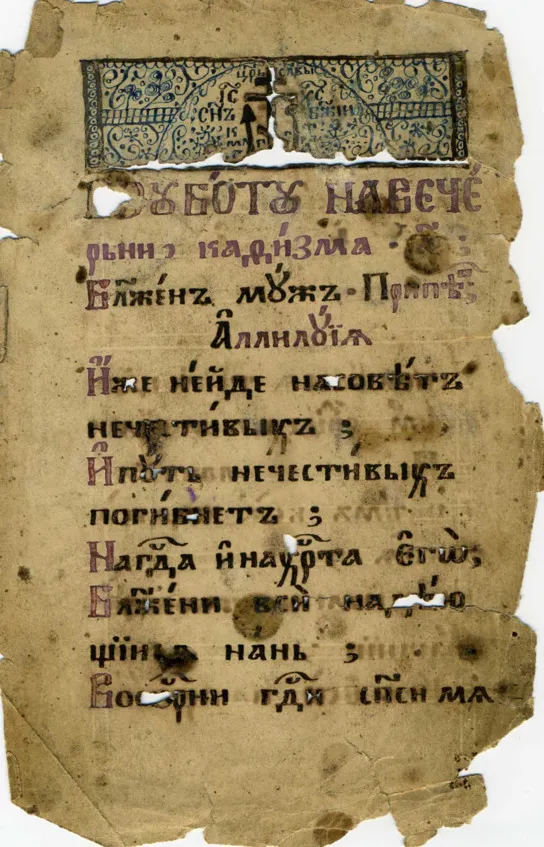 ІС
СНЪ БЖІИ
СꙊБО́ТꙊ НАВЕЧЕ́
рьни каѳи́зма · а҃
Бл҃же́нъ мꙋ́жъ · Припѣ́в
А҆ллилꙋ́їѧ
И҆́же не́йде насовѣ́тъ
нечести́выхъ ;
И҆пꙋ́ть нечестивыхъ
поги́бнетъ ;
Нагд҃а и҆нахр҃та є҆гѡ̀ ;
Бл҃же́ни вси̑ надѣ́ю
щїисѧ на́нь ;
Воскр҃ни гд҃и сп҃си мѧ